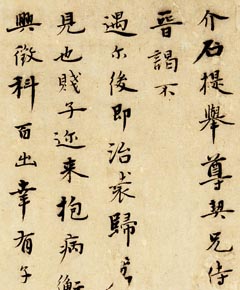 介石提舉尊契兄侍
晉謁不
遇尓後即治裝歸
見也賤子近来抱病衡
興徵科百出幸有子